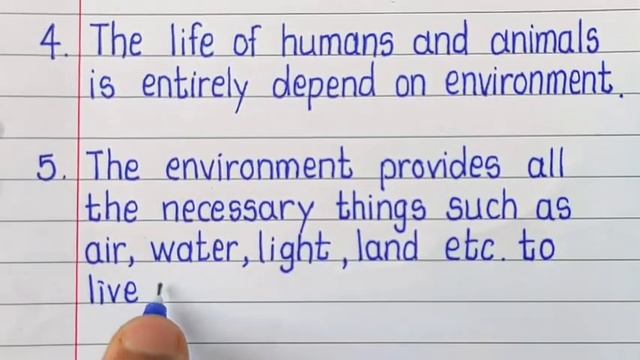 4. The life of humans and animals
is entirely depend on environment.
5. The environment provides all
the necessary things such as
air, water, light, land etc. to
live